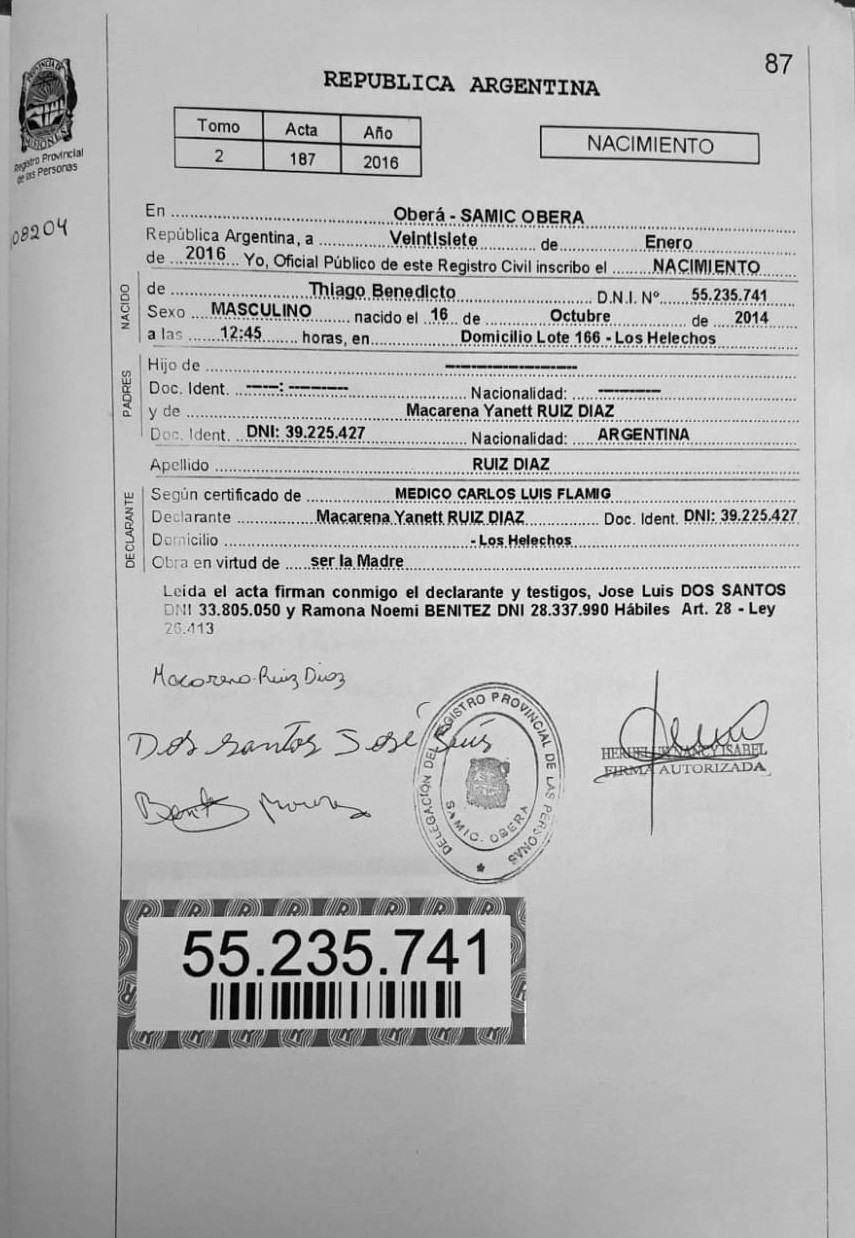 87
REPUBLICA ARGENTINA
PROVINCIA DE
MISIONES
Registro Provincial
de las Personas
08204
Tomo Acta Año
2 187 2016
NACIMIENTO
En Oberá - SAMIC OBERA
República Argentina, a Veintisiete de Enero
de 2016 Yo, Oficial Público de este Registro Civil inscribo el NACIMIENTO
NACIDO
de Thiago Benedicto D.N.I. Nº 55.235.741
Sexo MASCULINO nacido el 16 de Octubre de 2014
a las 12:45 horas, en Domicilio Lote 166 - Los Helechos
PADRES
Hijo de --------------------
Doc. Ident. -----: --------- Nacionalidad: ----------
y de Macarena Yanett RUIZ DIAZ
Doc. Ident. DNI: 39.225.427 Nacionalidad: ARGENTINA
Apellido RUIZ DIAZ
DECLARANTE
Según certificado de MEDICO CARLOS LUIS FLAMIG
Declarante Macarena Yanett RUIZ DIAZ Doc. Ident. DNI: 39.225.427
Domicilio - Los Helechos
Obra en virtud de ser la Madre
Leída el acta firman conmigo el declarante y testigos, Jose Luis DOS SANTOS
DNI 33.805.050 y Ramona Noemi BENITEZ DNI 28.337.990 Hábiles Art. 28 - Ley
26.413
Macarena Ruiz Diaz
Dos Santos José Luis
DELEGACIÓN DEL REGISTRO PROVINCIAL DE LAS PERSONAS
SAMIC. OBERA
NANCY ISABEL
FIRMA AUTORIZADA
55.235.741